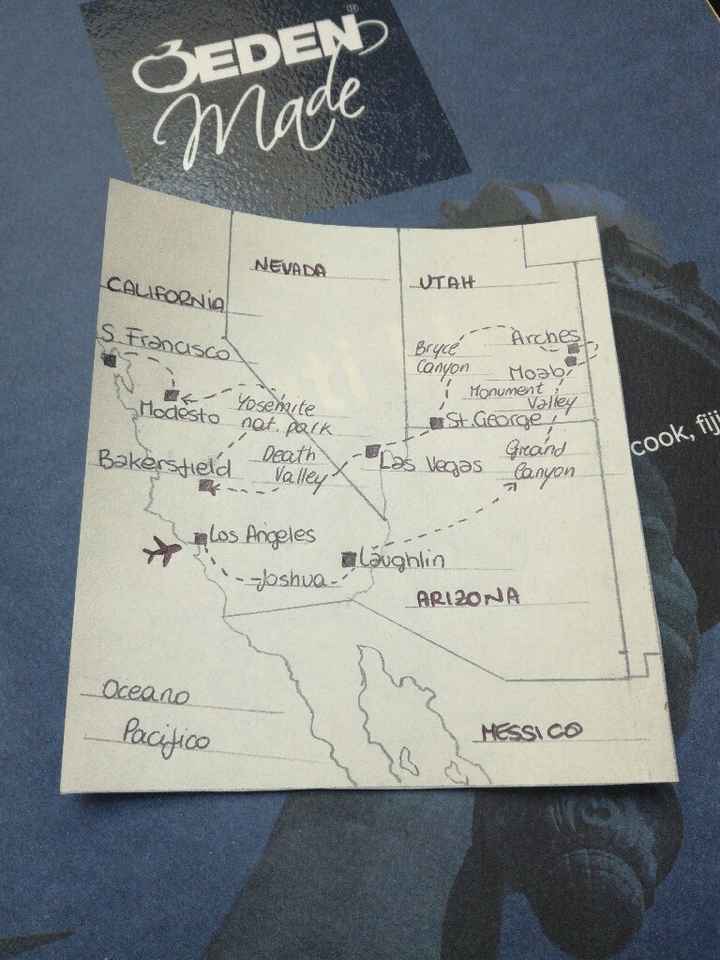 EDEN®
Made
NEVADA
UTAH
CALIFORNIA
S. Francisco
Arches
Bryce
Canyon
Moab
Monument
Valley
Modesto
Yosemite
nat. park
St. George
cook, fiji
Bakersfield
Death
Valley
Las Vegas
Grand
Canyon
Los Angeles
Laughlin
Joshua
ARIZONA
Oceano
Pacifico
MESSICO